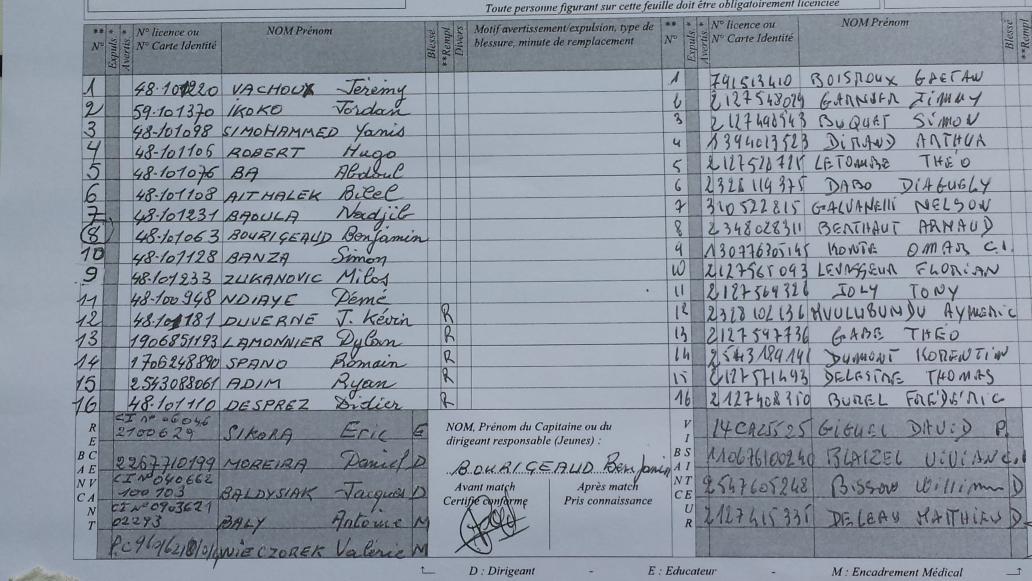 Toute personne figurant sur cette feuille doit être obligatoirement licenciée
** N° * Expuls * Avertis N° licence ou N° Carte Identité NOM Prénom Blessé **Rempl Divers Motif avertissement/expulsion, type de blessure, minute de remplacement ** N° * Expuls * Avertis N° licence ou N° Carte Identité NOM Prénom Blessé **Rempl
1 48-101220 VACHOUX Jérémy 1 791513410 BOISROUX GAETAN
2 59-101370 IKOKO Jordan 2127548029 GARNIER JIMMY
3 48-101098 SIMOHAMMED Yanis 3 2127498943 BUQUET SIMON
4 48-101105 ROBERT Hugo 4 1394013523 DINAND ARTHUR
5 48-101076 BA Abdoul 5 LETOMBE THÉO
6 48-101108 AITMALEK Bilel 6 2328119375 DABO DIAGUELY
7 48-101231 BAOULA Nadjib 7 310522815 GALVANELLI NELSON
8 48-101063 BOURIGEAUD Benjamin 8 2348028311 BERTHAUT ARNAUD
10 48-101128 BANZA Simon 9 KONTE OMAR C.I.
9 48-101233 ZUKANOVIC Milos 10 2127565093 LEVASSEUR FLORIAN
11 48-100948 NDIAYE Démé 11 2127564326 JOLY TONY
12 48-101181 DUVERNE J. Kévin R 12 2328102136 MVULUBUNDU AYMERIC
13 1906851193 LAMONNIER Dylan R 13 2127547736 GABE THÉO
14 1706248890 SPANO Romain R 14 2543189141 DUMONT KORENTIN
15 2543088061 ADIM Ryan R 15 2127571493 DELESTRE THOMAS
16 48-101110 DESPREZ Didier R 16 2127408350 BUREL FRÉDÉRIC
RECEVANT BANC
CI N° 2100629 SIKORA Eric E
2267710199 MOREIRA Daniel D
CI N° 040662 100703 BALDYSIAK Jacques D
CI N° 0903621 02293 BALY Antoine M
NIECZOREK Valérie M
NOM, Prénom du Capitaine ou du dirigeant responsable (Jeunes) :
BOURIGEAUD Benjamin
Avant match Certifié conforme
Après match Pris connaissance
VISITEUR BANC
14CA25525 GIGUEL DAVID
110676100240 BLAIZEL VIVIAN C.I
2547605248 BISSON William D
2127415335 DELEAU MATTHIEU D
D : Dirigeant - E : Educateur - M : Encadrement Médical